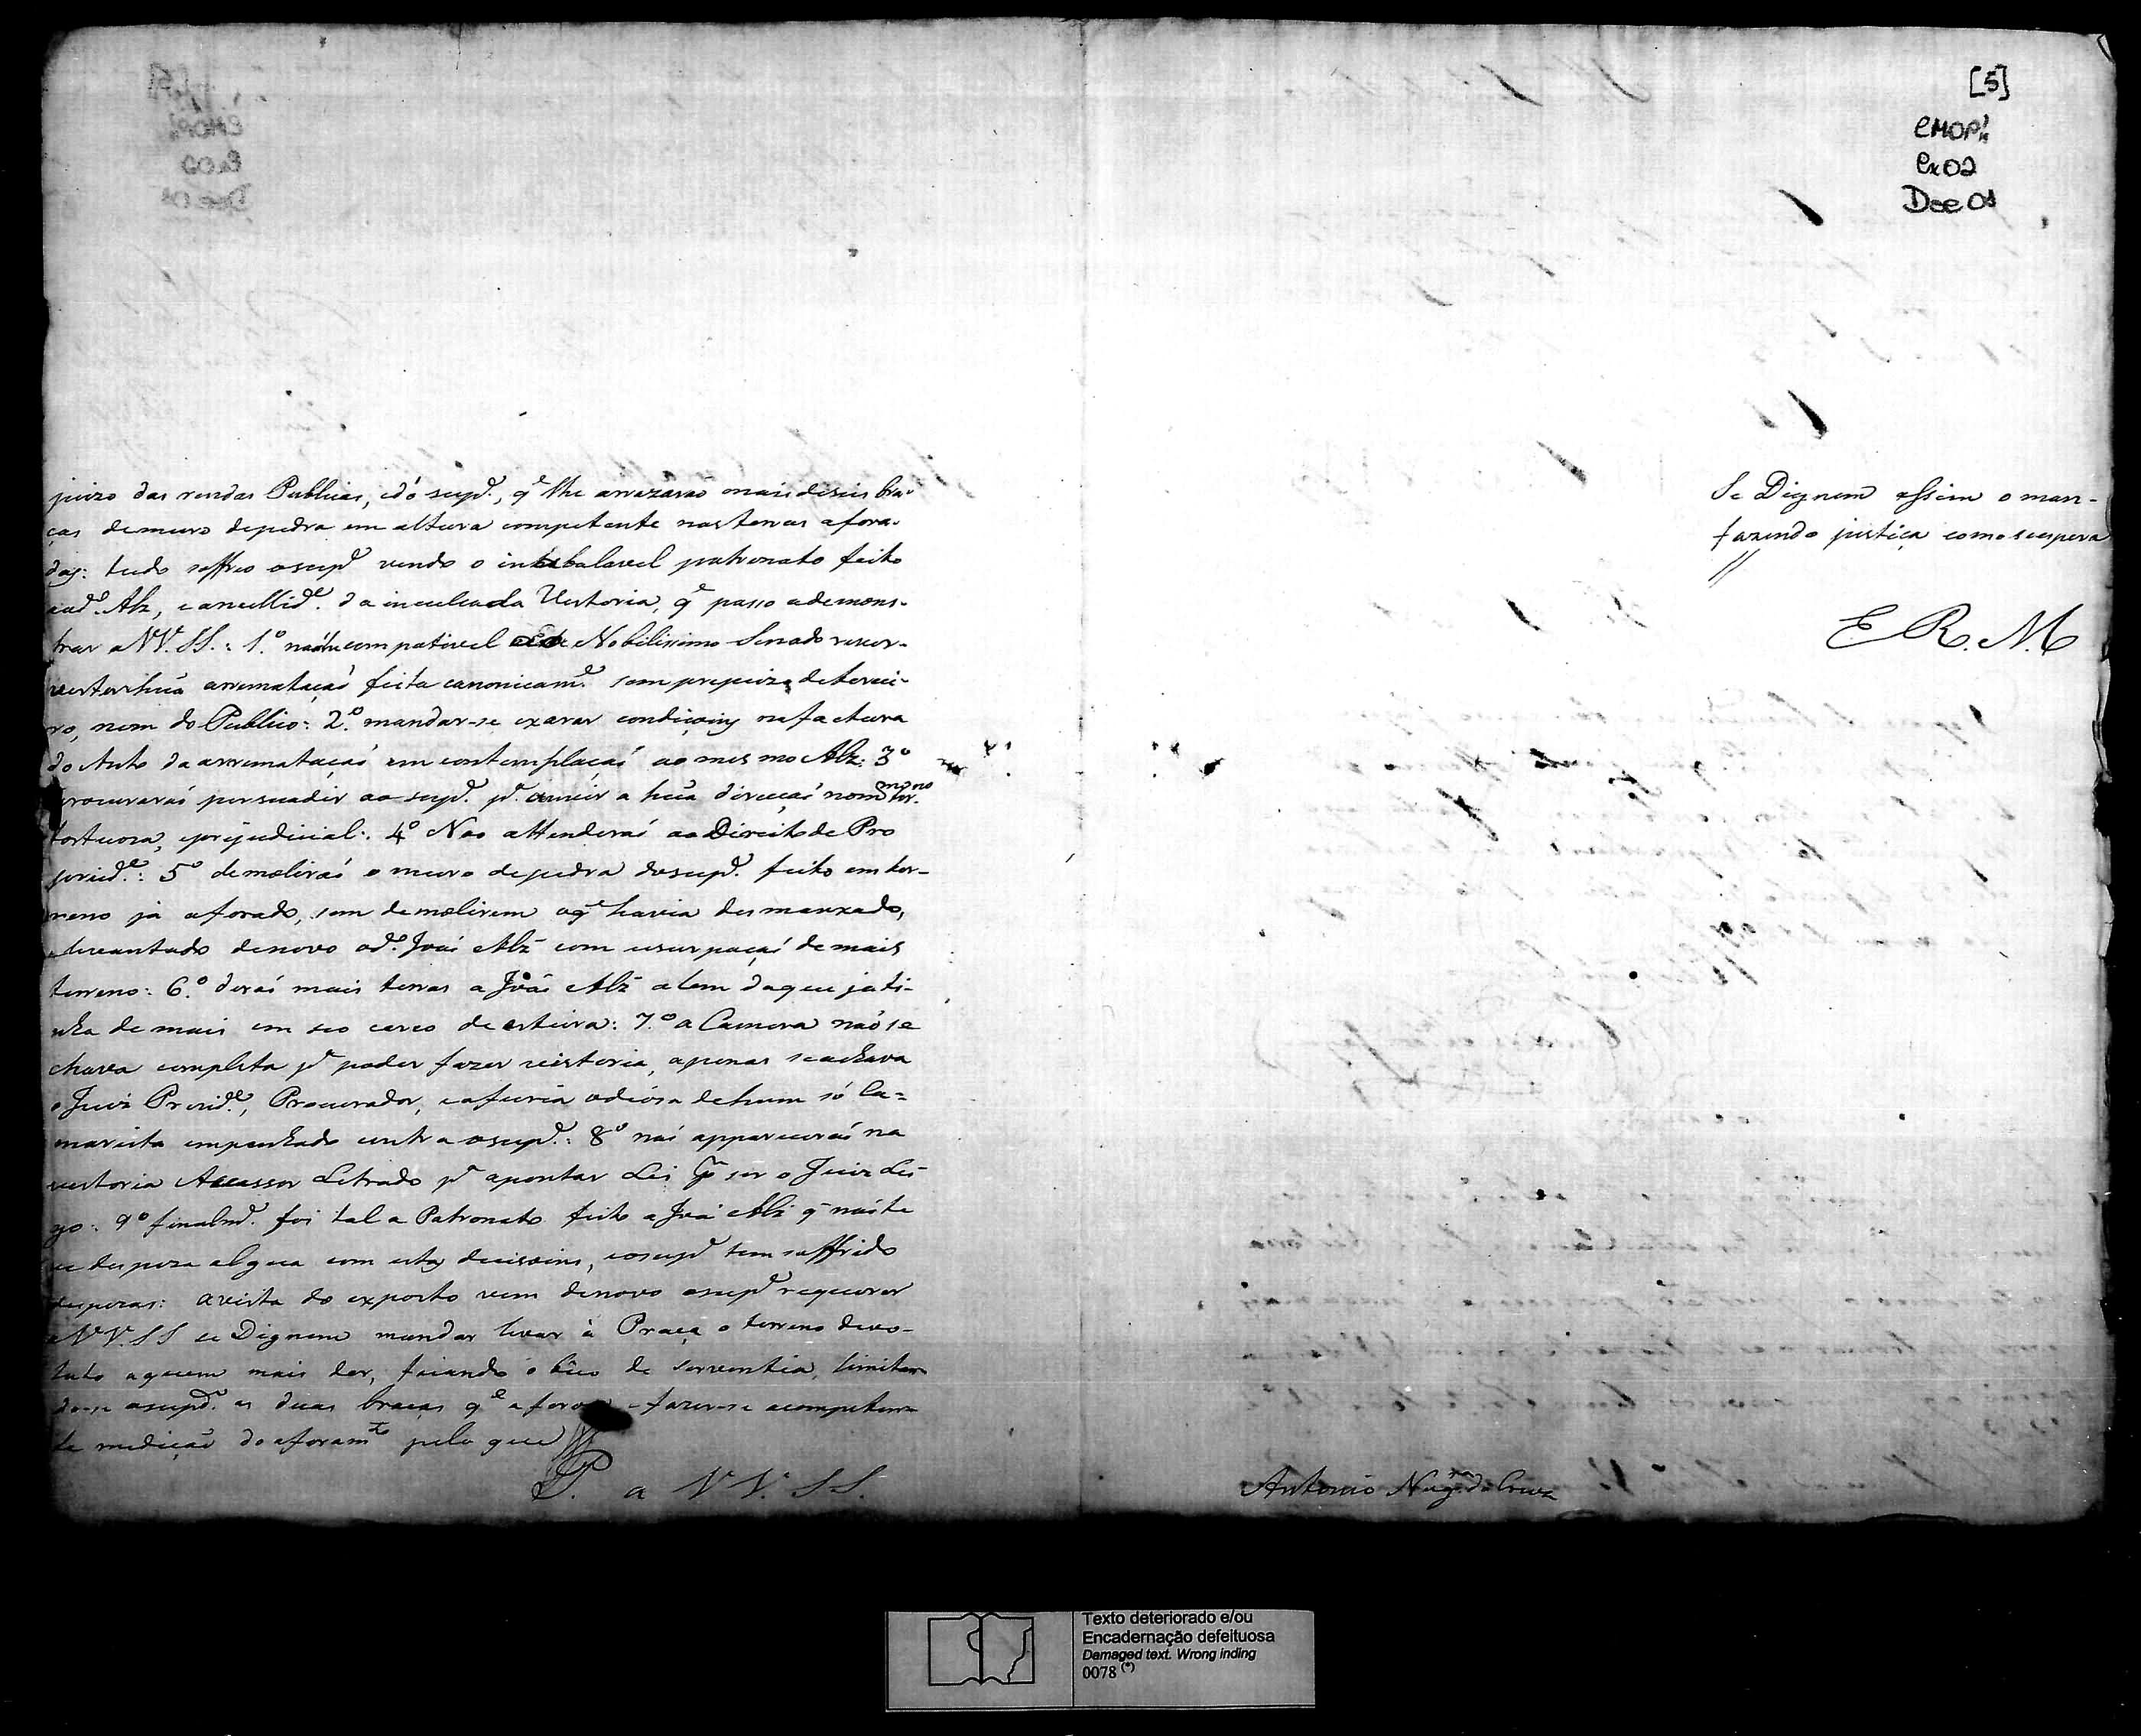 juizo das rendas Publicas, e d'o sup.e, q.e lhe arrazarão mais deseis bra-
ças de muro de pedra em altura competente nas terras afora-
das: tudo soffreo o sup.e vendo o inabalavel patronato feito
aod.o Alz, e a nullid.e da inculcada Vestoria, q.e passo a demons-
trar a VV. SS.: 1.o não he compativel Nobilissimo Senado
arremataçaõ feita canonicam.e sem prejuizo de tercei-
ro, nem do Publico: 2.o mandar-se exarar condiçoins na factura
do Auto da arremataçaõ em contemplaçaõ ao mesmo Alz: 3o
procuraraõ persuadir ao sup.e p.a a hũa direcçaõ
tortuosa, e prejudicial: 4o Nao attenderaõ ao Direito de Pro
pried.e: 5o demoliraõ o muro de pedra do sup.e feito em ter-
reno já aforado, sem demolirem o q.e havia desmanxado,
e levantado denovo od.o Joaõ Alz com usurpaçaõ de mais
terreno: 6.o deraõ mais terras a Joaõ Alz alem da que já ti-
nha de mais em seo cerco de esteira: 7.o a Camera não se
chava completa p.a poder fazer vestoria, apenas se achava
o Juiz Presid.e, Procurador, e a furia odiosa de hum só Ca=
marista empenhado contra o sup.e: 8o naõ appareceraõ na
vestoria Acessor Letrado p.a apontar Lei p.r ser o Juiz Lei-
go: 9o finalm.e foi tal a Patronato feito a Joaõ Alz q.e naõ te
ve despeza algũa com estas decisoins, e o sup.e tem soffrido
despezas: avista do exposto vem denovo o sup.e requerer
a VV. SS se Dignem mandar levar á Praça o terreno devo-
luto a quem mais der, ficando o bêco de serventia, limitan
do-se o sup.e as duas braças q.e aforou e fazer-se a competen-
te medição do aforam.to pelo que
P. a VV. SS.
[5]
CMOP!
Cx02
Doc 01
Se Dignem assim o man-
fazendo justiça como se espera
//
E. R. M.
Antonio da Cruz
Texto deteriorado e/ou
Encadernação defeituosa
Demaged text. Wrong inding
0078 (*)